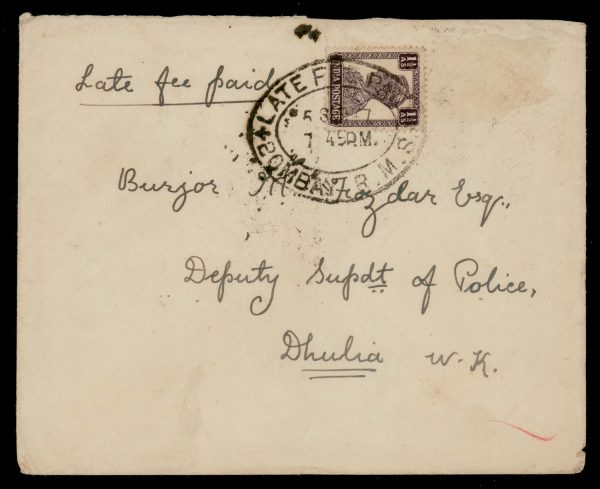 Late fee paid
1½ AS INDIA POSTAGE 1½ AS
LATE FEE PAID
5 SE 7
7 45 P.M.
BOMBAY R.M.S.
Burjor Fozdar Esq.,
Deputy Supdt of Police,
Dhulia W.K.